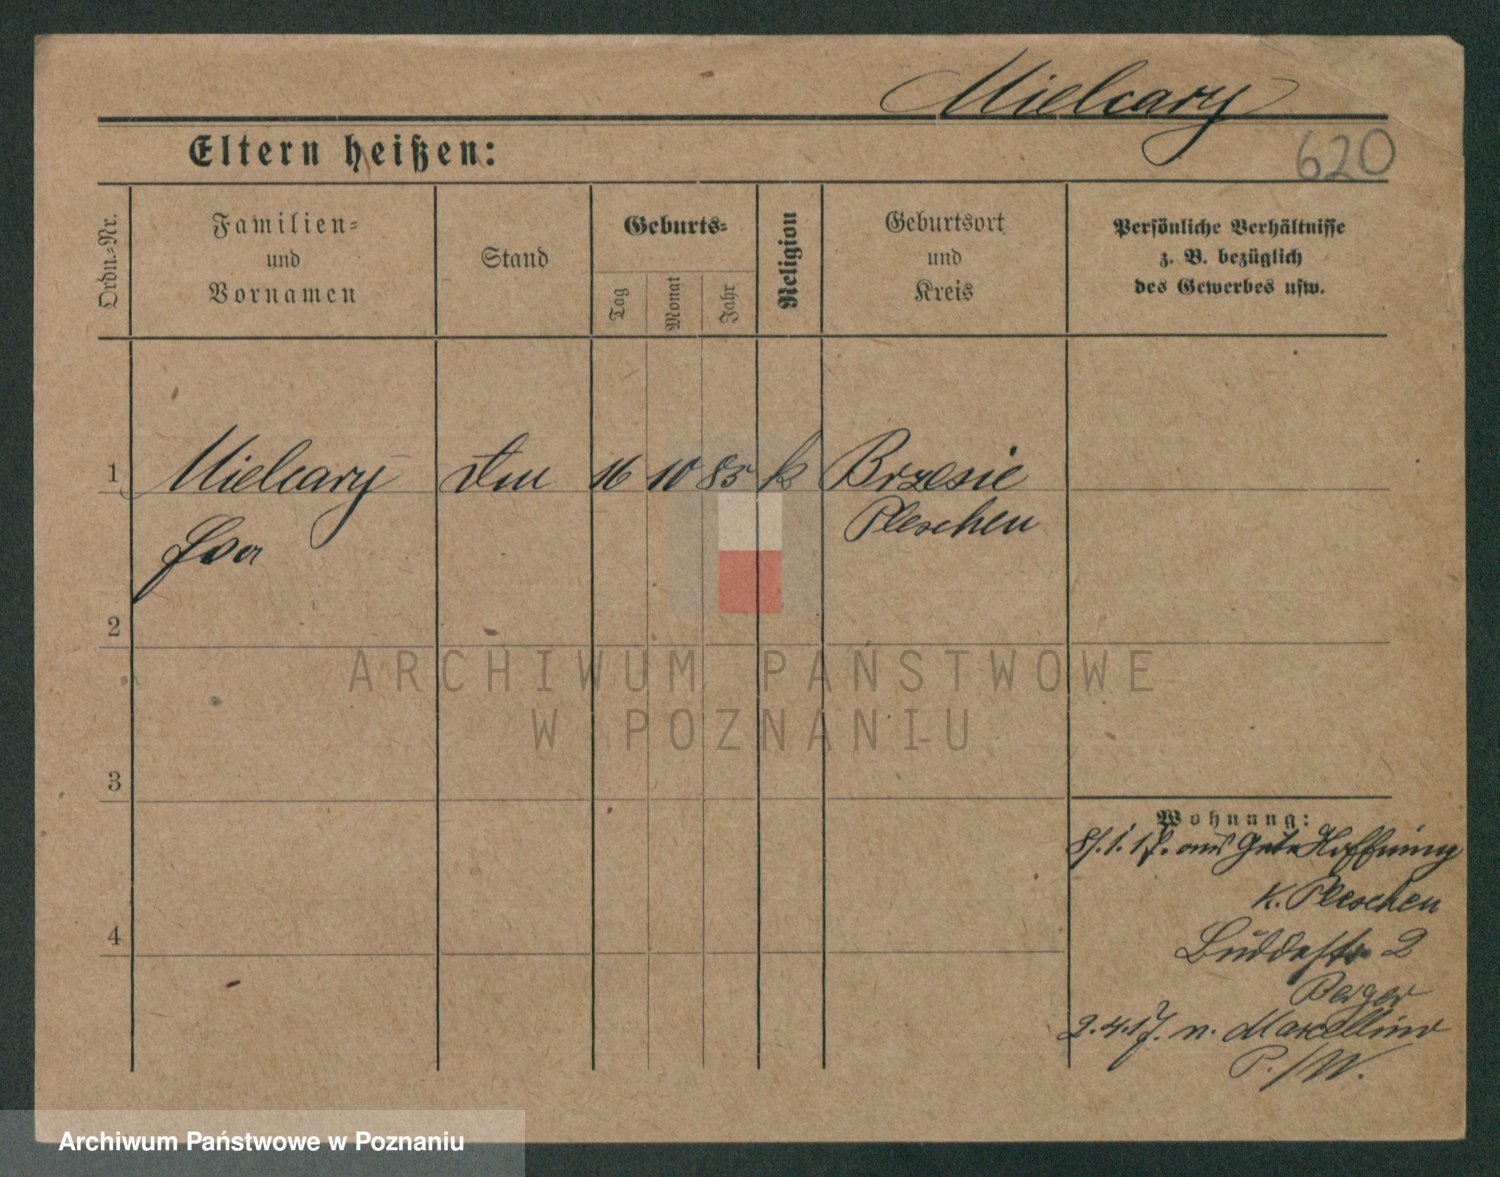 Mielcary
620
Eltern heißen:
Ordn.-Nr.
Familien-
und
Vornamen
Stand
Geburts-
Tag
Monat
Jahr
Religion
Geburtsort
und
Kreis
Persönliche Verhältnisse
z. B. bezüglich
des Gewerbes usw.
1 Mielcary 16 10 85 k Brzesie
Eva Pleschen
2
ARCHIWUM PAŃSTWOWE
W POZNANIU
3
Wohnung:
8/.1.17. aus Gute Hoffnung
K. Pleschen
4
Buddestr. 2
Berger
2.4.17. n. Marcellino
P./W.
Archiwum Państwowe w Poznaniu